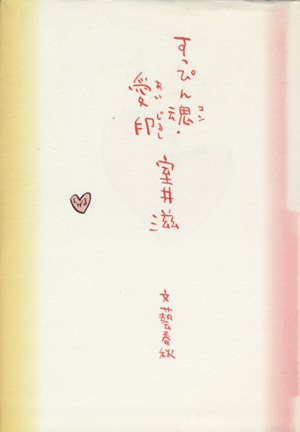 すっぴん魂・
コン
愛印
あい じるし
室井滋
文藝春秋